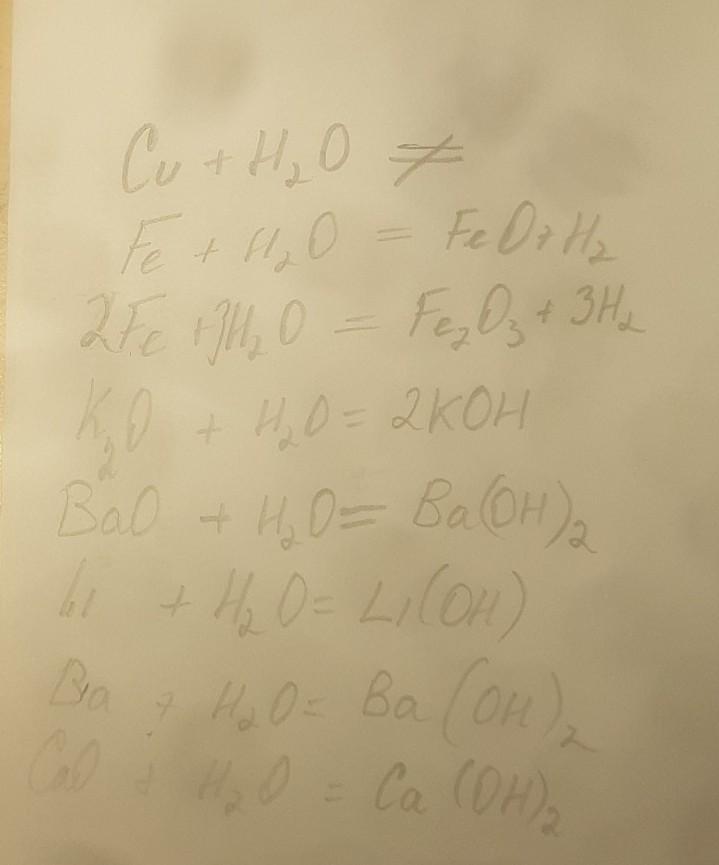 Cu + H₂O ≠
Fe + H₂O = FeO + H₂
2Fe + 3H₂O = Fe₂O₃ + 3H₂
K₂O + H₂O = 2KOH
BaO + H₂O = Ba(OH)₂
Li + H₂O = Li(OH)
Ba + H₂O = Ba(OH)₂
CaO + H₂O = Ca(OH)₂